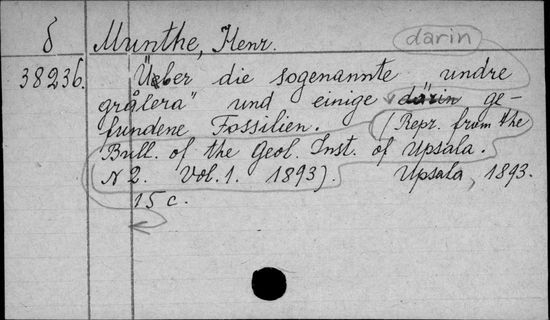 δ Munthe, Henr. darin
38236. Ueber die sogenannte undre
grålera" und einige därin ge-
fundene Fossilien. (Repr. from the
Bull. of the Geol. Inst. of Upsala.
N 2. Vol. 1. 1893). Upsala, 1893.
15 c.